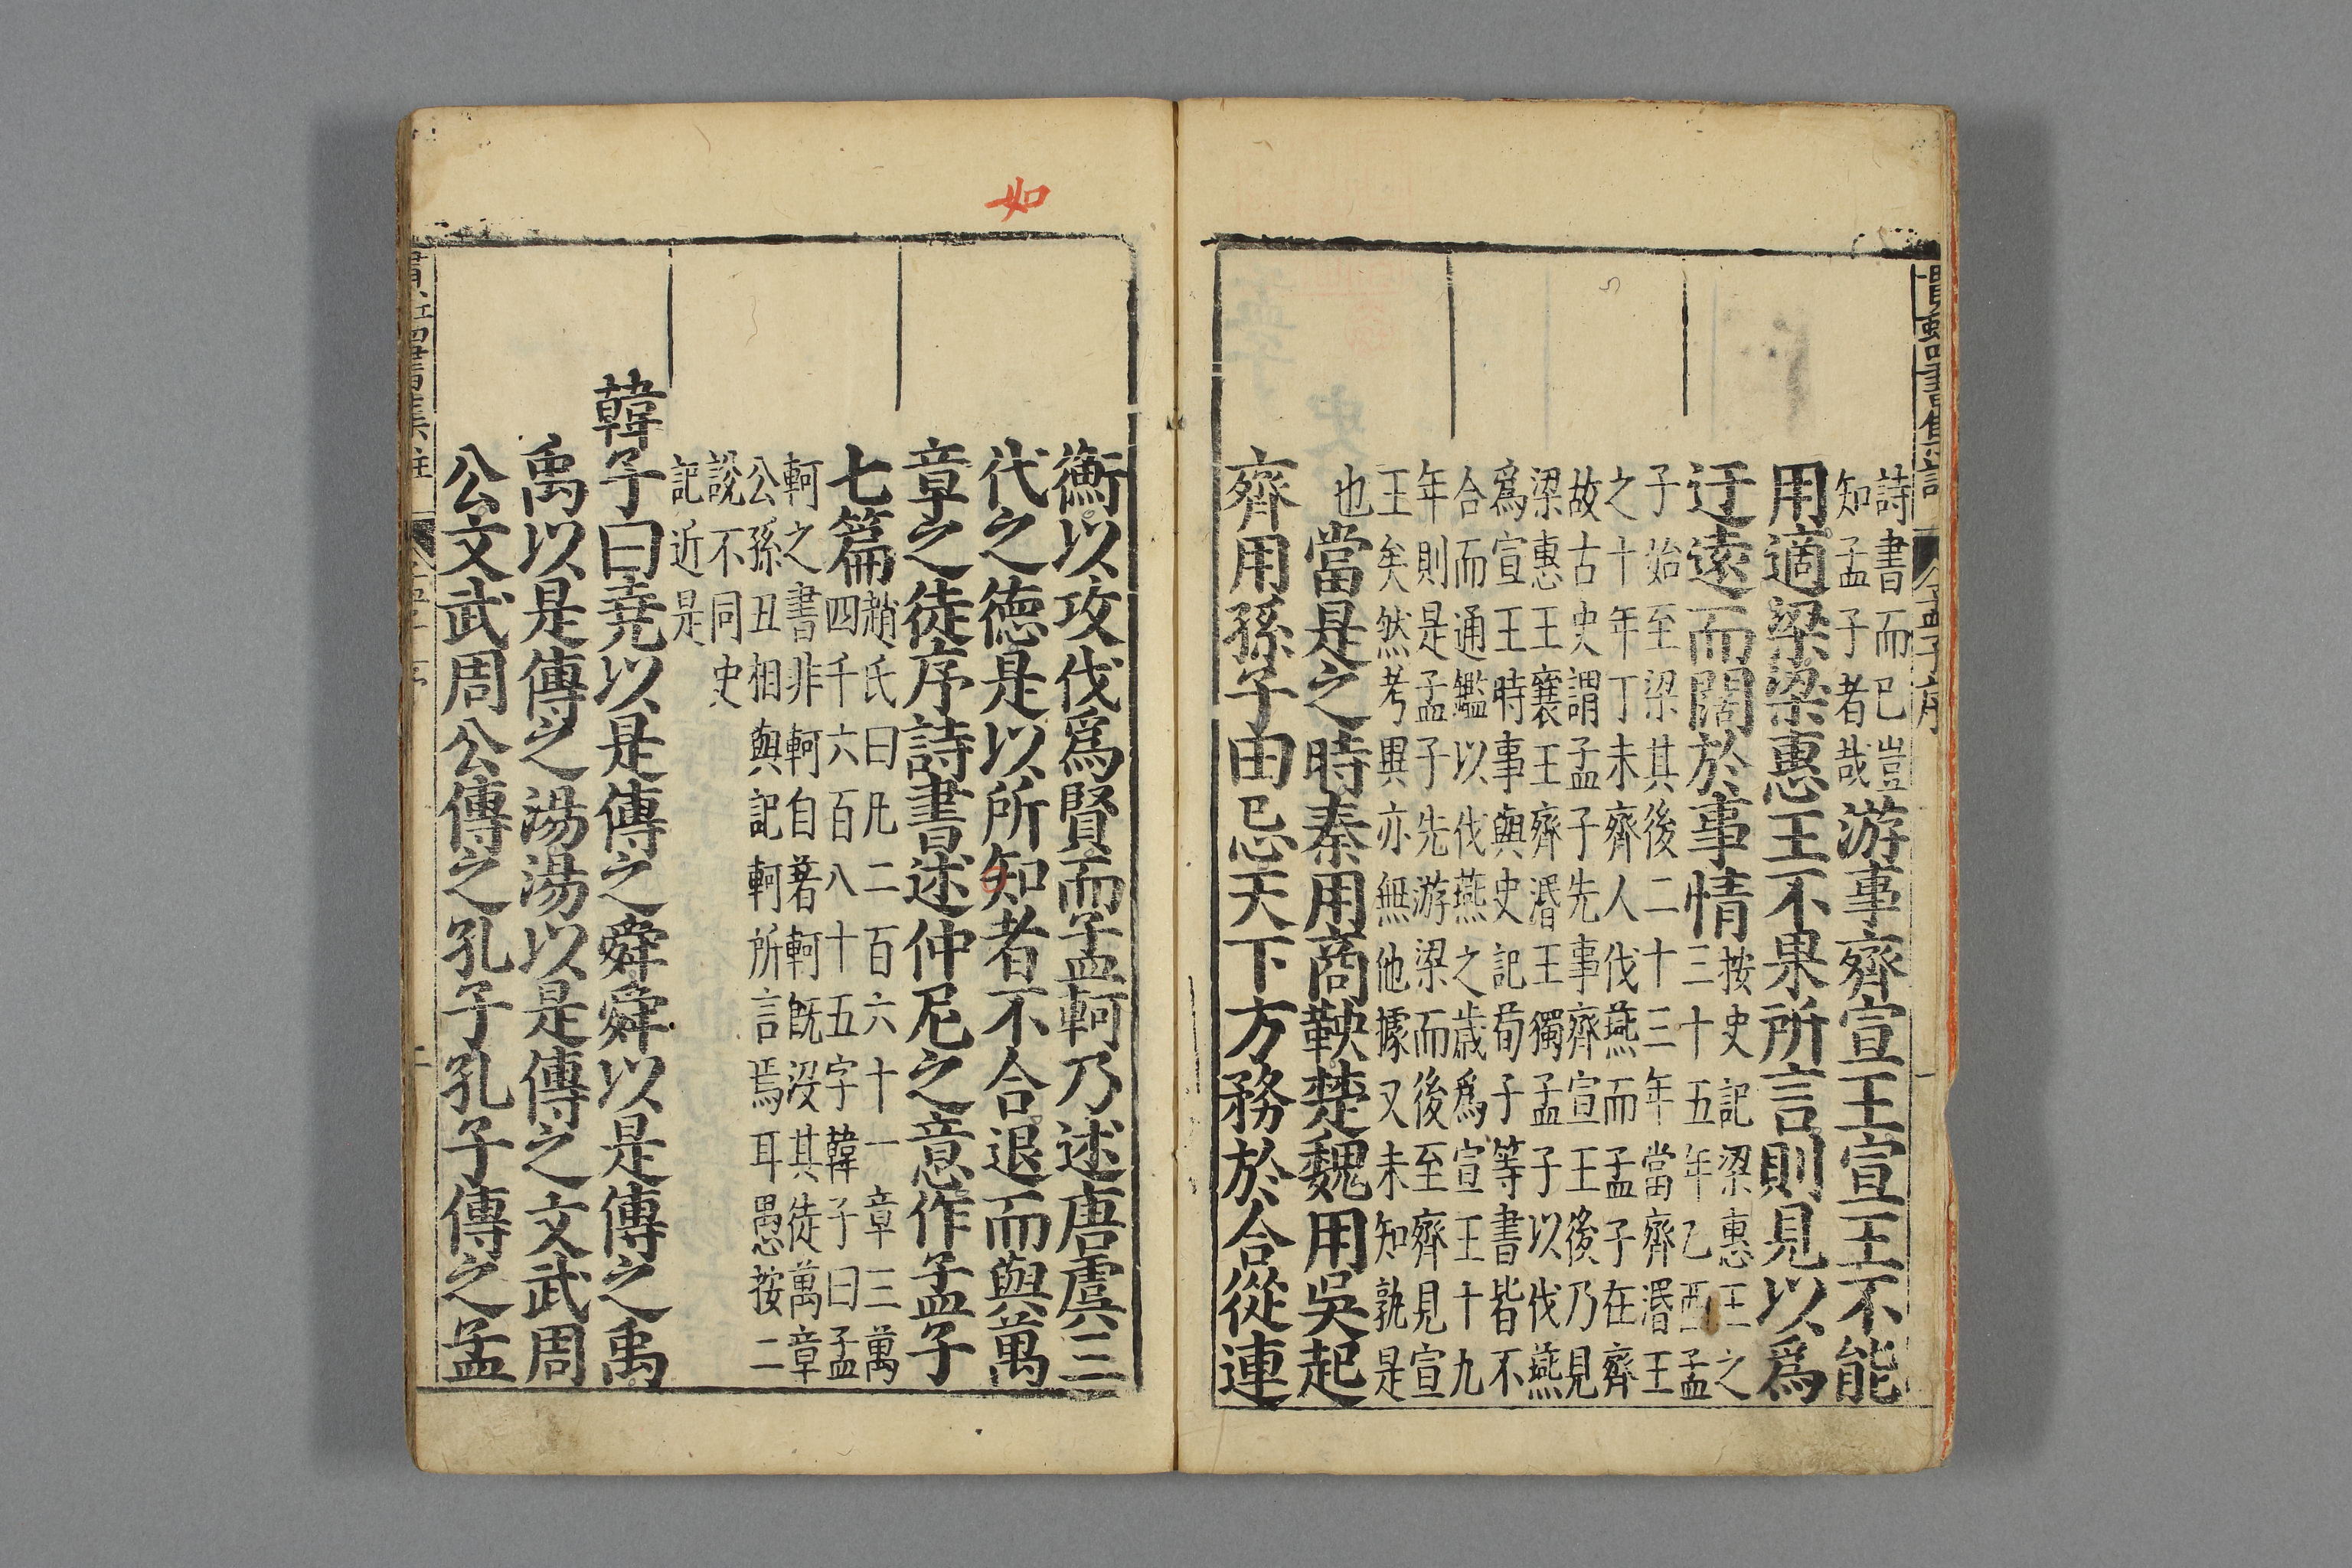 詩書而已豈
知孟子者哉
游事齊宣王宣王不能
用適梁梁惠王不果所言則見以爲
迂遠而闊於事情
按史記梁惠王之
三十五年乙酉孟
子始至梁其後二十三年當齊湣王
之十年丁未齊人伐燕而孟子在齊
故古史謂孟子先事齊宣王後乃見
梁惠王襄王齊湣王獨孟子以伐燕
爲宣王時事與史記荀子等書皆不
合而通鑑以伐燕之歲爲宣王十九
年則是孟子先游梁而後至齊見宣
王矣然考異亦無他據又未知孰是
也
當是之時秦用商鞅楚魏用吳起
齊用孫子由忌天下方務於合從連
如
衡以攻伐爲賢而孟軻乃述唐虞三
代之德是以所知者不合退而與萬
章之徒序詩書述仲尼之意作孟子
七篇
趙氏曰凡二百六十一章三萬
四千六百八十五字韓子曰孟
軻之書非軻自著軻旣沒其徒萬章
公孫丑相與記軻所言焉耳愚按二
說不同史
記近是
韓子曰堯以是傳之舜舜以是傳之禹
禹以是傳之湯湯以是傳之文武周
公文武周公傳之孔子孔子傳之孟